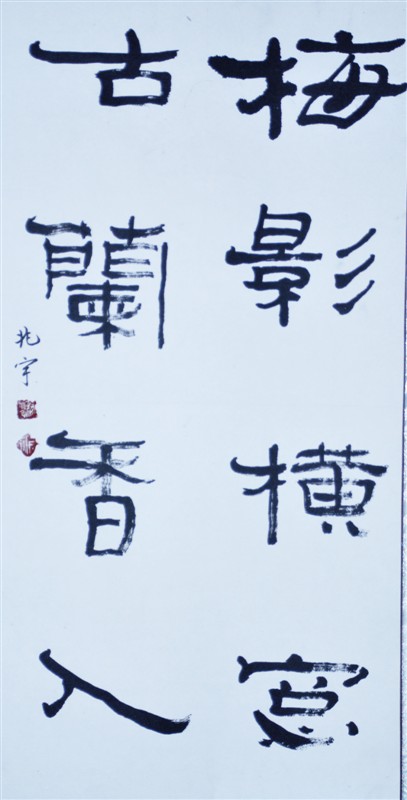 梅影横窗
古蘭香入
兆宇